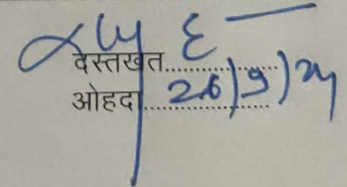 दस्तखत..................
ओहदा.... 26/9/24